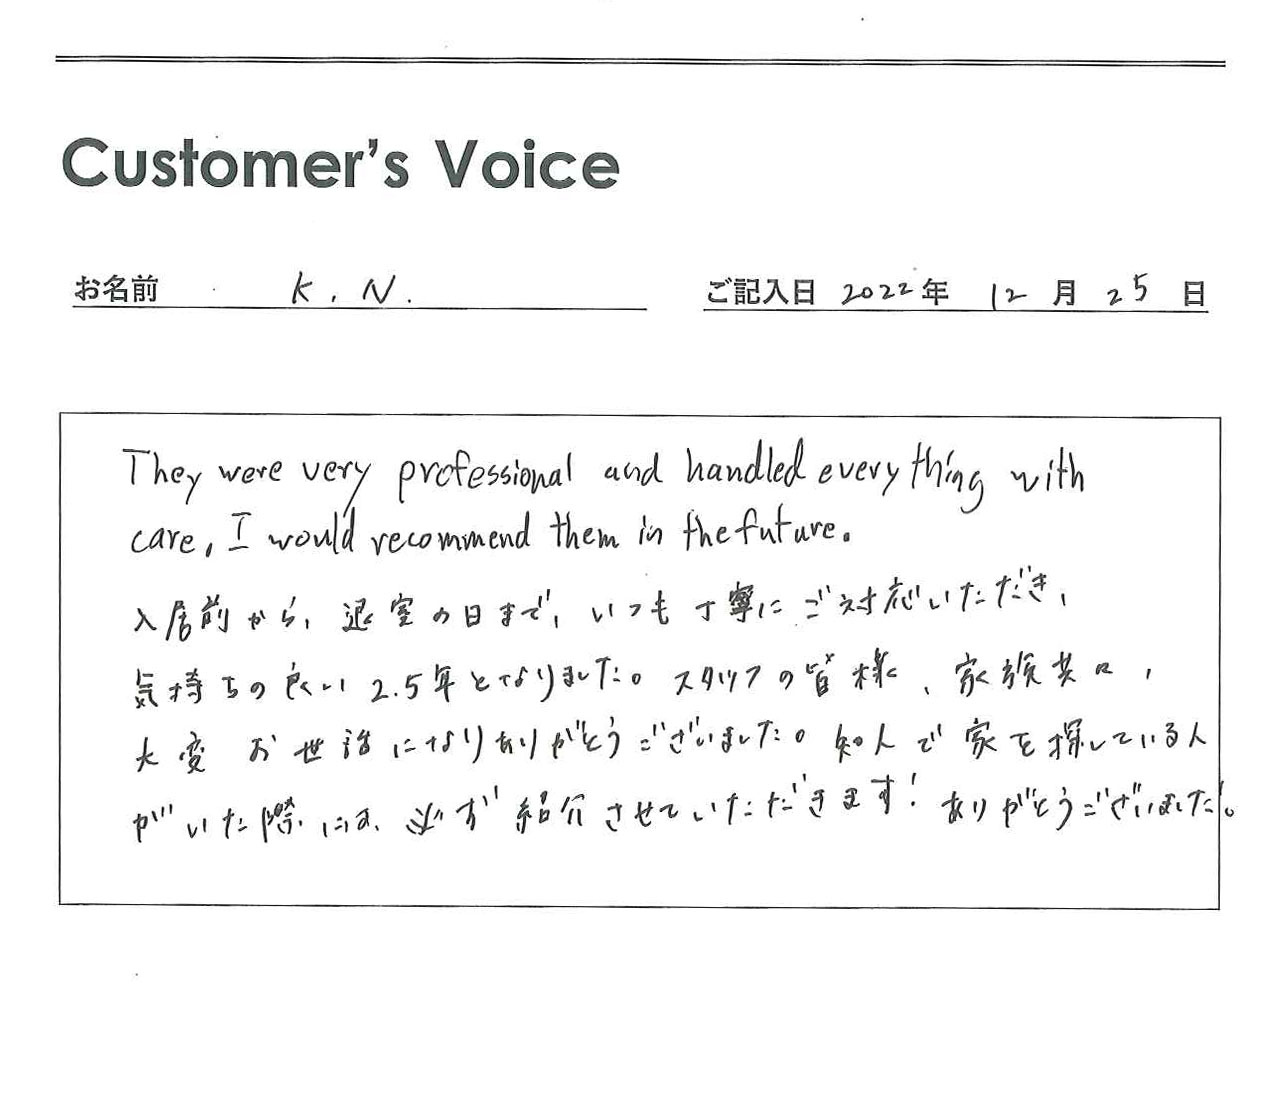 Customer's Voice
お名前 K.N.
ご記入日 2022年 12月 25日
They were very professional and handled everything with
care, I would recommend them in the future.
入居前から、退室の日まで、いつも丁寧にご対応いただき、
気持ちの良い2.5年となりました。スタッフの皆様、家族共に、
大変お世話になりありがとうございました。知人で家を探している人
がいた際には、必ず紹介させていただきます！ありがとうございました。